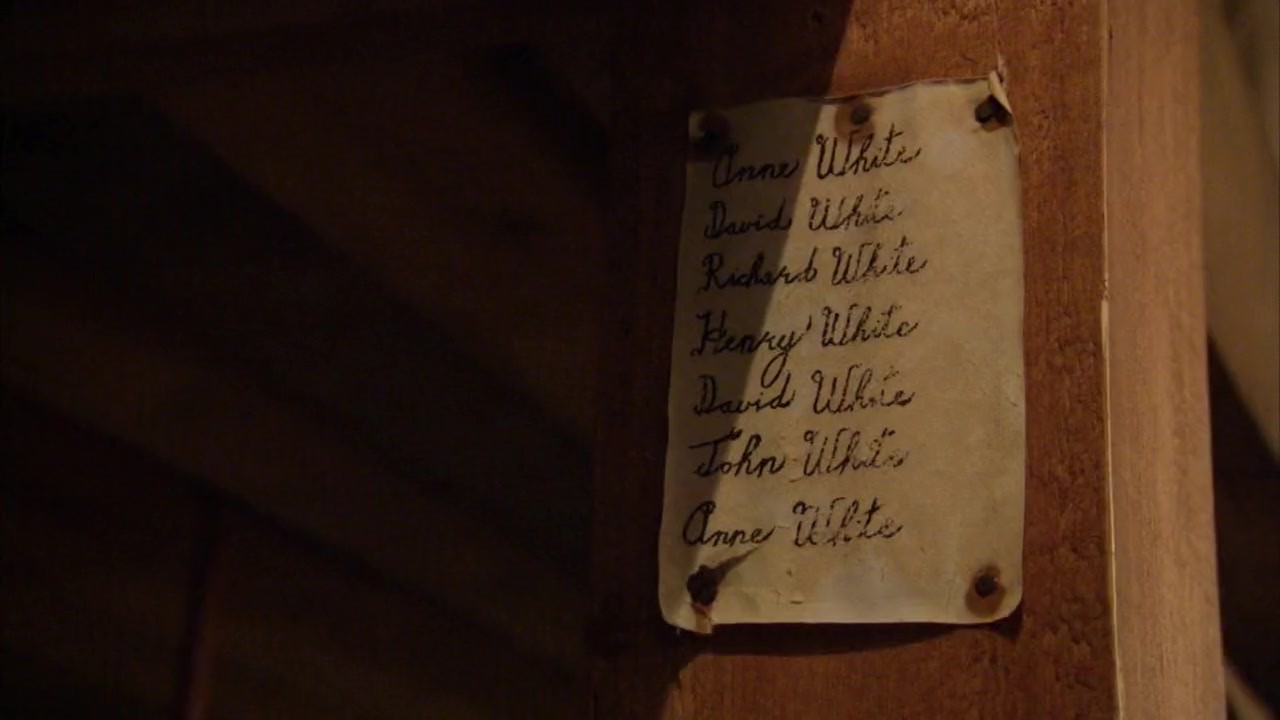 Anne White
David White
Richard White
Henry White
David White
John White
Anne White